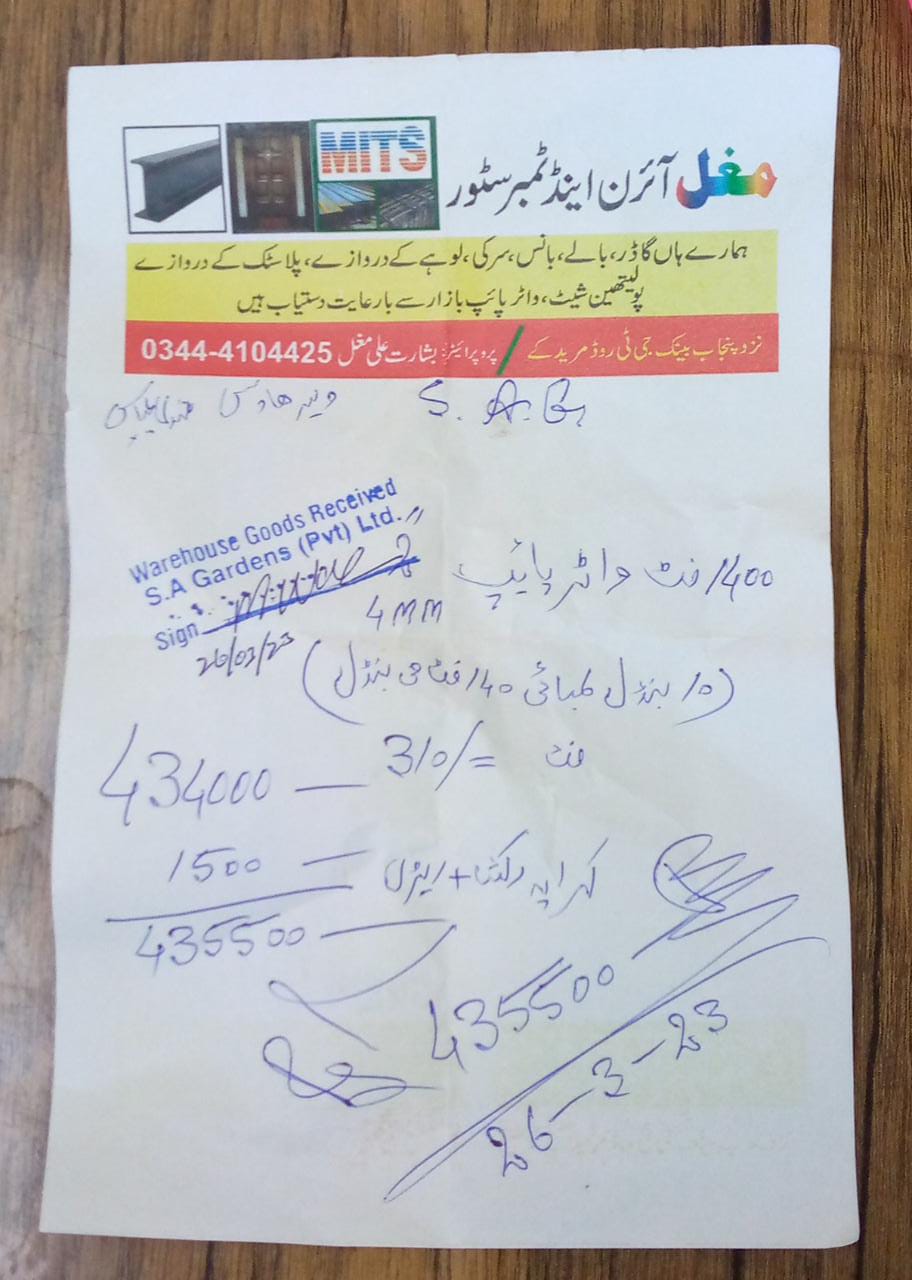 MITS
مغل آئرن اینڈ ٹمبر سٹور
ہمارے ہاں گاڈر، بالے، بانس، سرکی، لوہے کے دروازے، پلاسٹک کے دروازے
پولیتھین شیٹ، واٹر پائپ بازار سے بارعایت دستیاب ہیں
نزد پنجاب بینک جی ٹی روڈ مریدکے / پروپرائٹر: بشارت علی مغل 0344-4104425
S. A. G.
Warehouse Goods Received
S.A Gardens (Pvt) Ltd.
Sign
26/03/23
1400 فٹ واٹر پائپ
4 MM
(10 بنڈل لمبائی 140 فٹ فی بنڈل)
فٹ 310/= — 434000
کرایہ رکشہ + — 1500
435500
435500
26-3-23